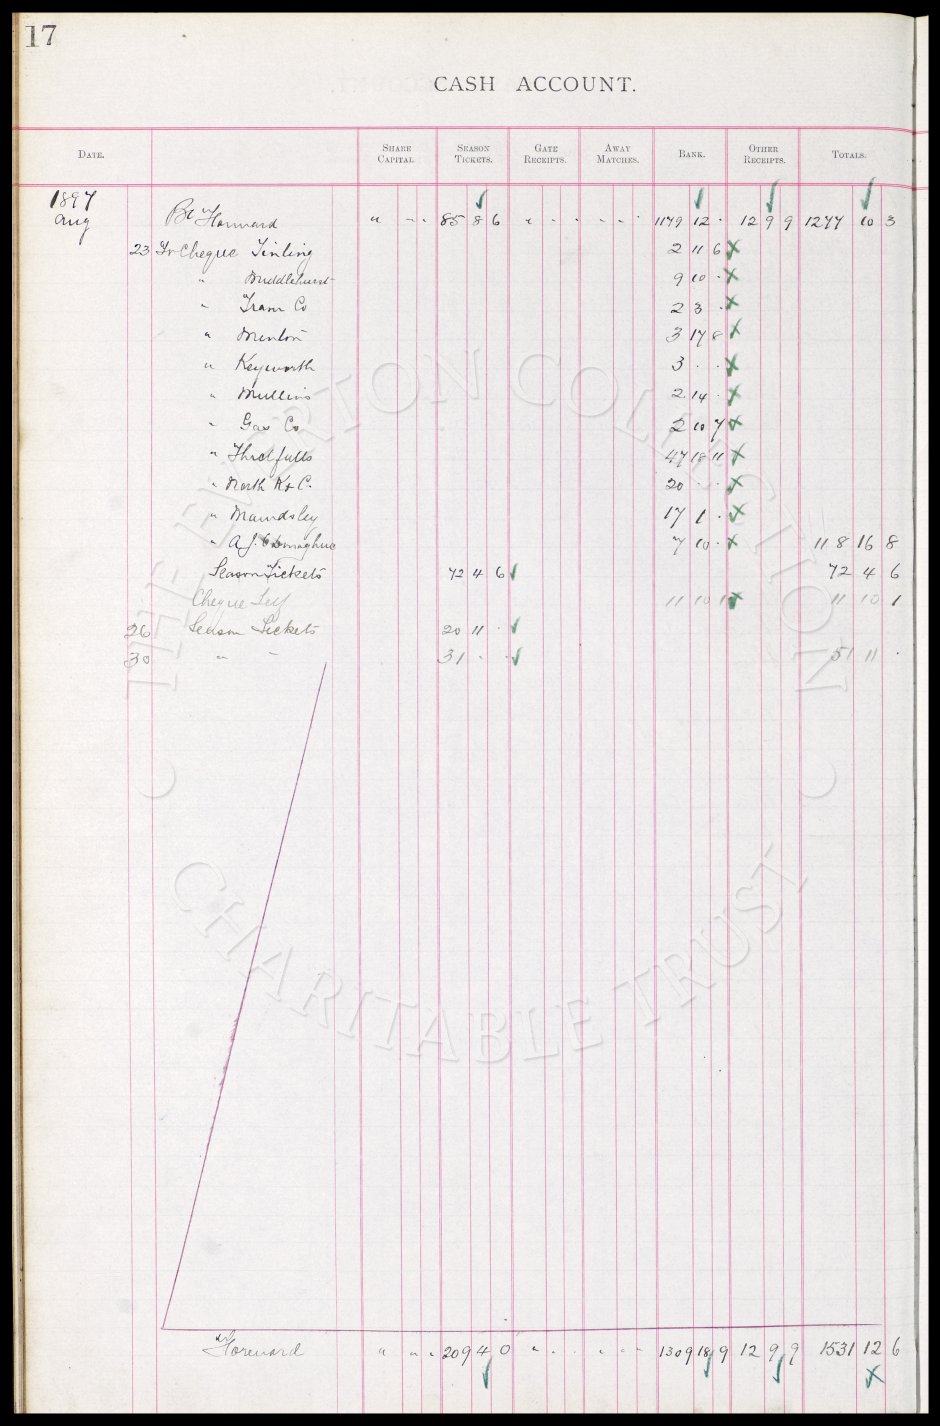 17
CASH ACCOUNT.
DATE. SHARE CAPITAL SEASON TICKETS. GATE RECEIPTS. AWAY MATCHES. BANK. OTHER RECEIPTS. TOTALS.
1897
Aug Bt Forward " " " 85 8 6 " " " " " " 1179 12 . 12 9 9 1277 10 3
23 To Cheque Tinling 2 11 6
" Middlehurst 9 10 .
" Tram Co 2 3 .
" Minton 3 17 8
" Keyworth 3 . .
" Mullins 2 14 .
" Gas Co 2 10 7
" Threlfalls 47 18 11
" North & C. 20 . .
" Mawdsley 17 1 .
" A.J. O'Donaghue 7 10 . 118 16 8
Season Tickets 72 4 6 72 4 6
Cheque Self 11 10 1 11 10 1
26 Season Tickets 20 11 .
30 " " 31 . . 51 11 .
Forward " " " 209 4 0 " " " " " " 1309 18 9 12 9 9 1531 12 6
THE EVERTON COLLECTION
CHARITABLE TRUST